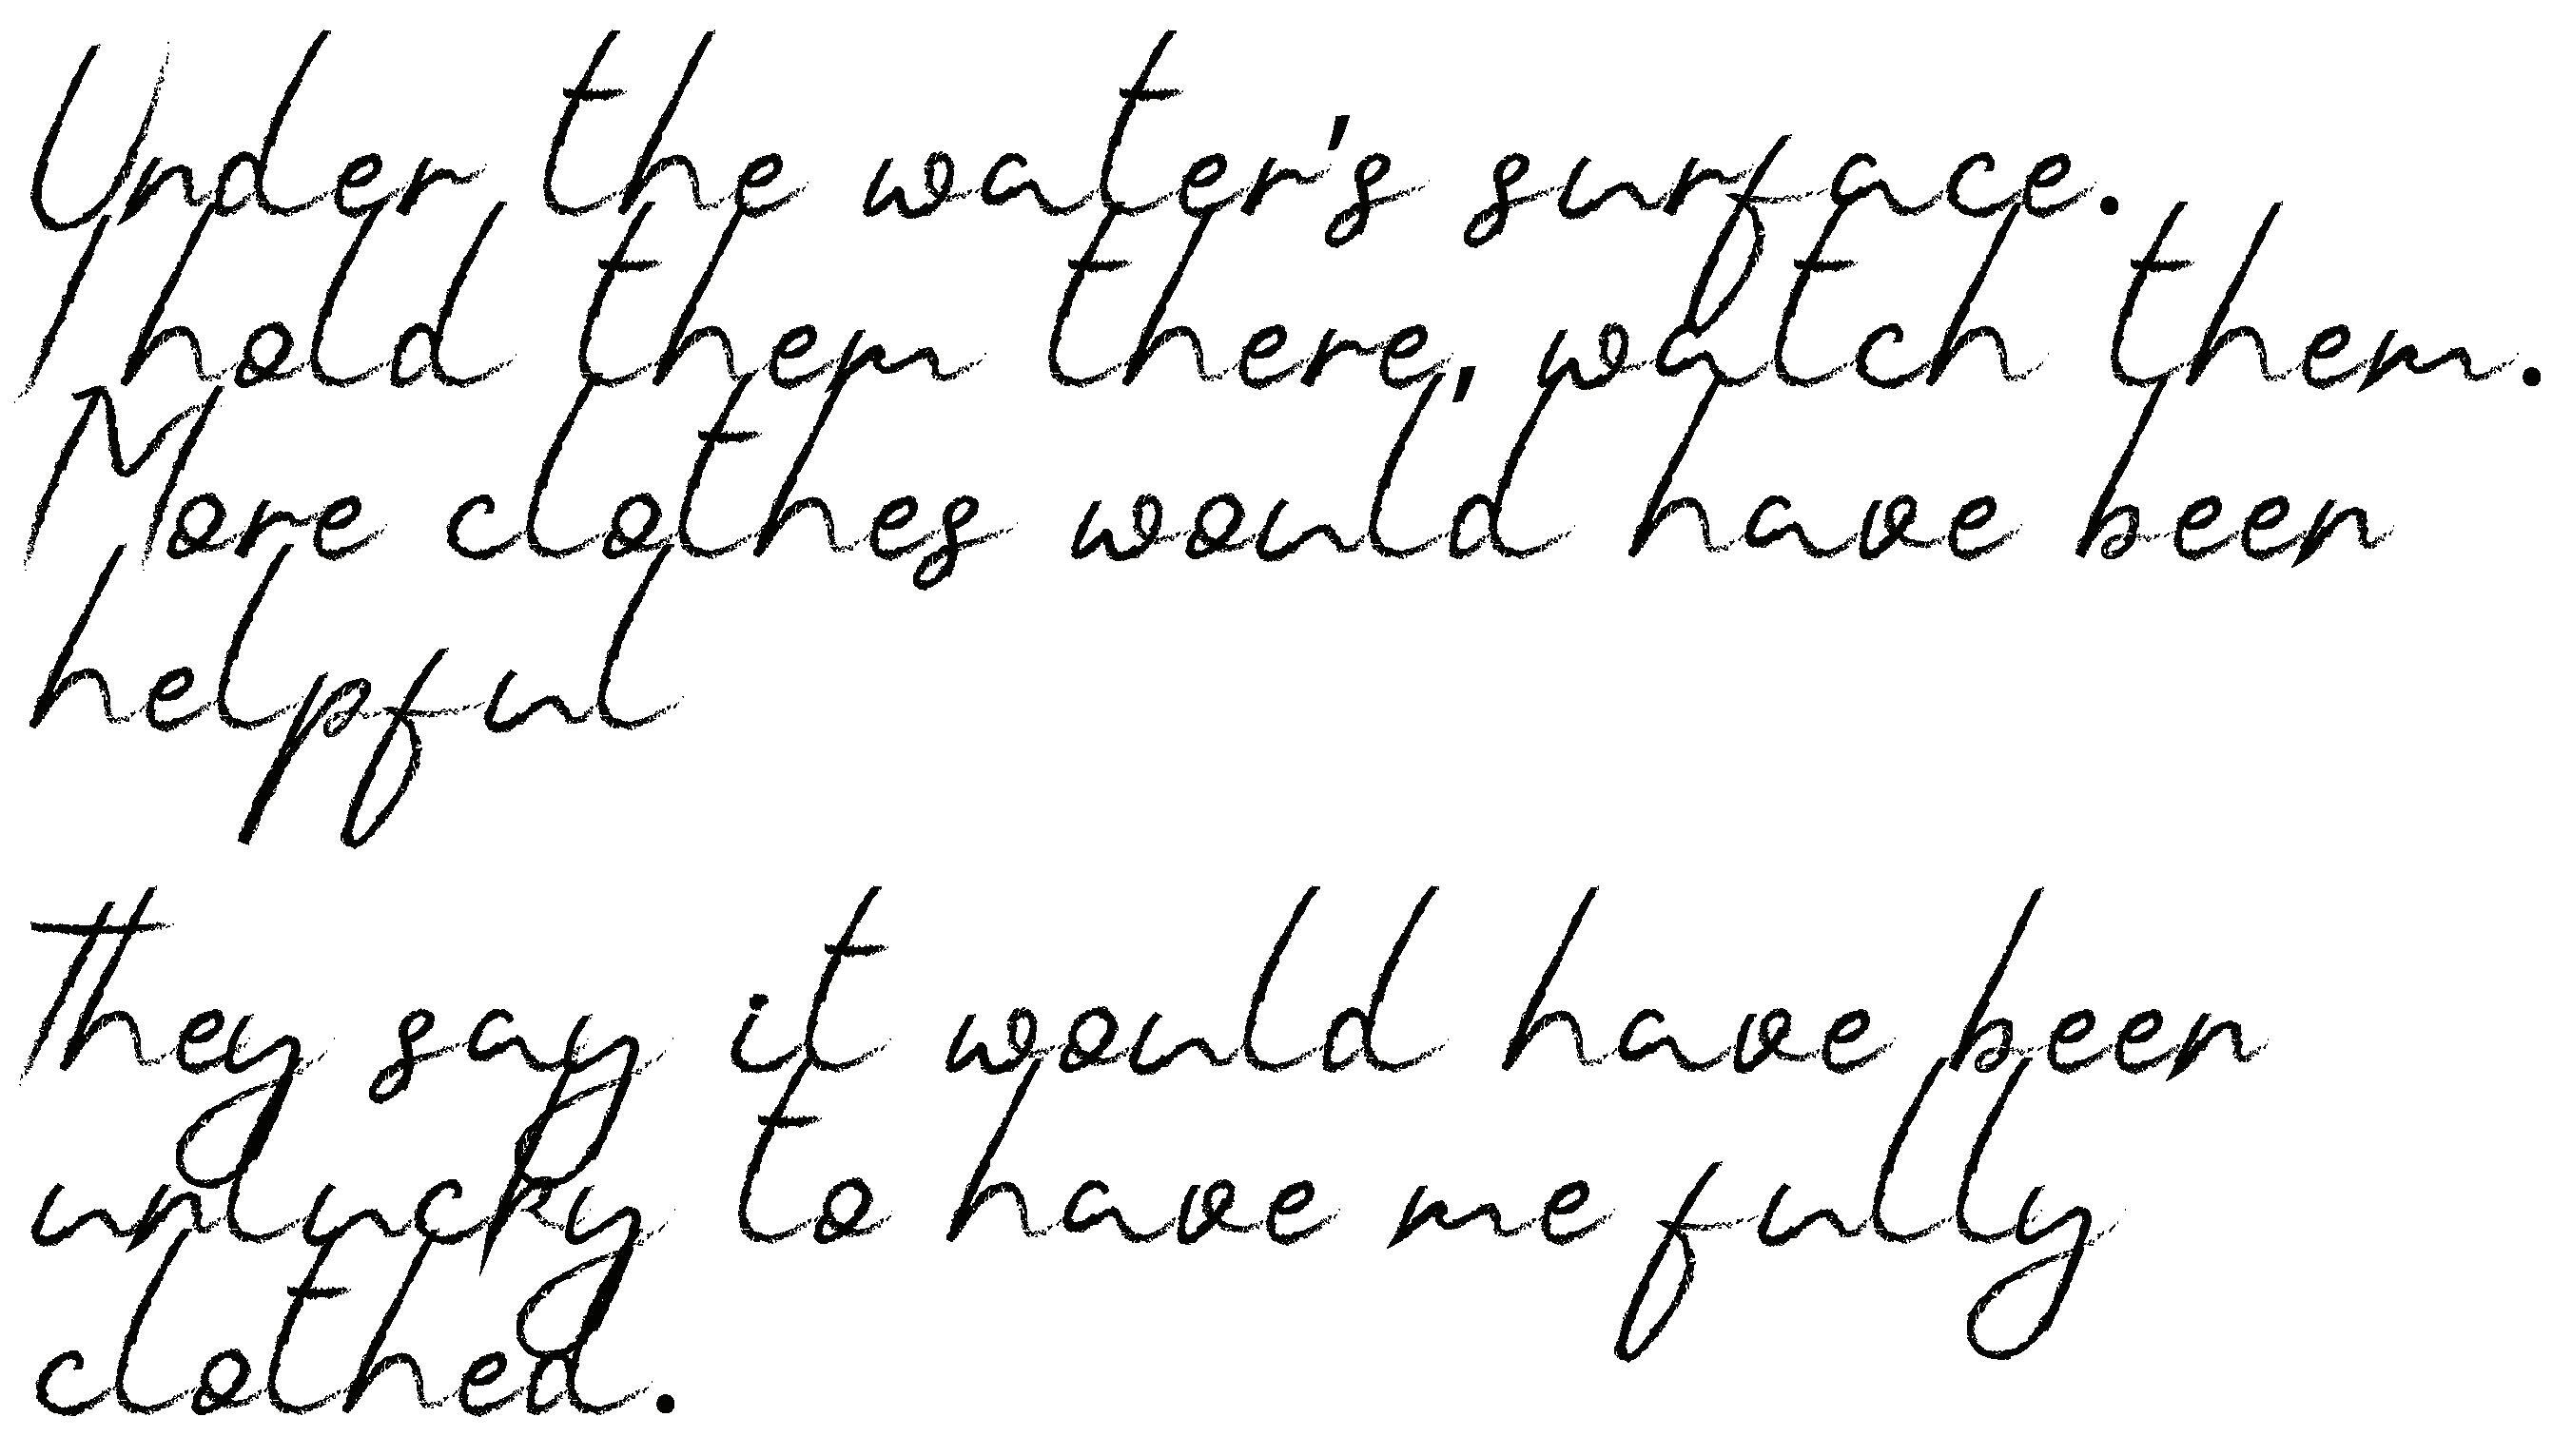 Under the water's surface.
I hold them there, watch them.
More clothes would have been
helpful
They say it would have been
unlucky to have me fully
clothed.